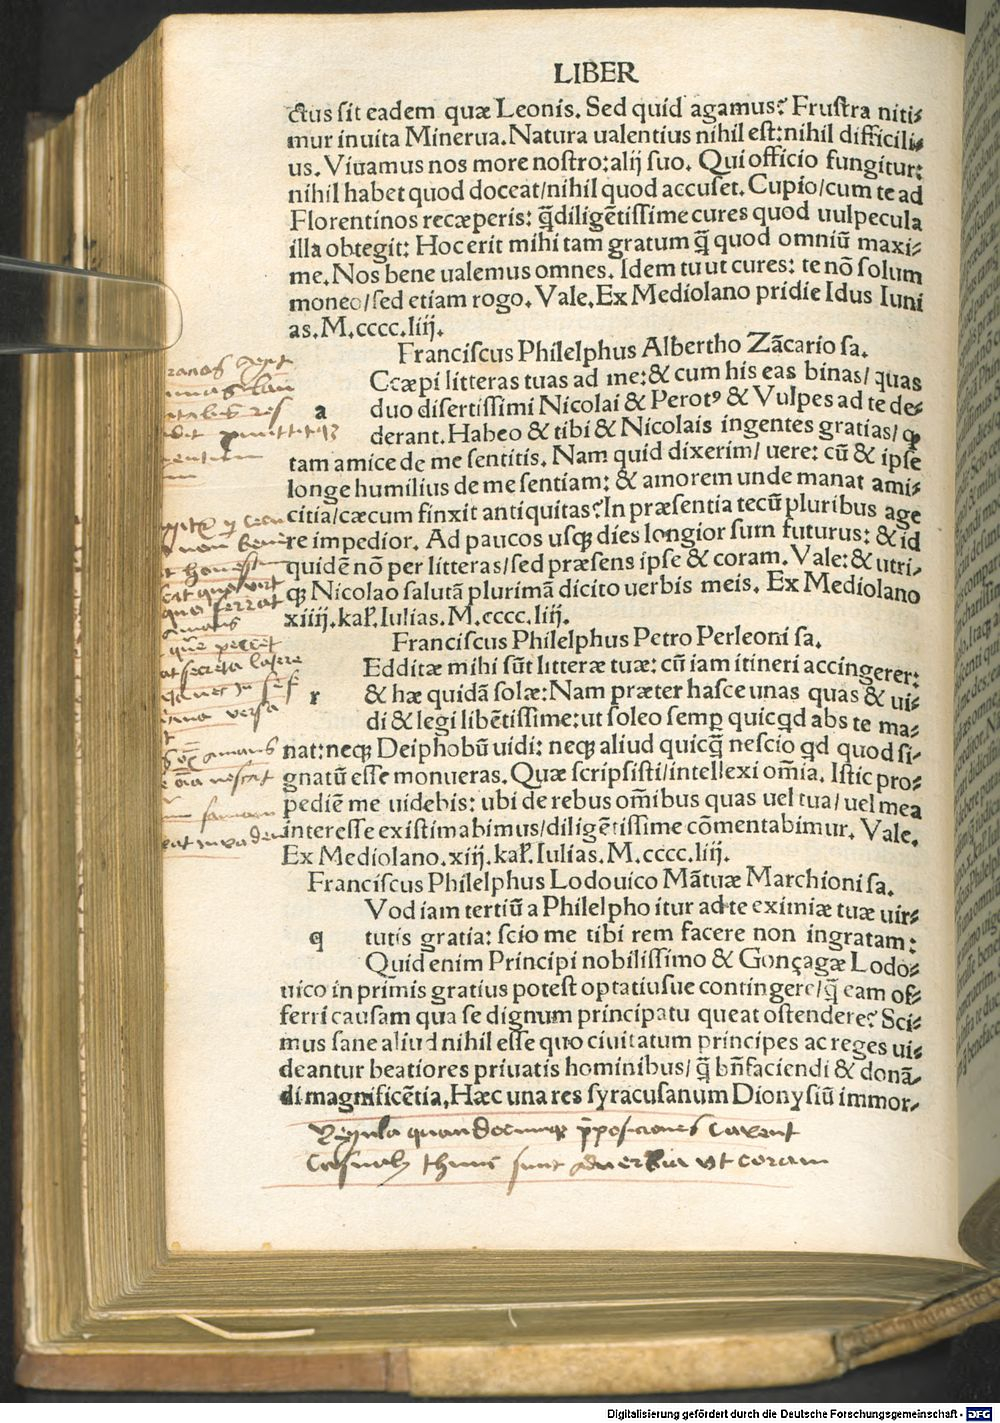 LIBER
ctus sit eadem quæ Leonis. Sed quid agamus? Frustra niti⸗
mur inuita Minerua. Natura ualentius nihil est: nihil difficili⸗
us. Viuamus nos more nostro: alij suo. Qui officio fungitur:
nihil habet quod doceat/nihil quod accuset. Cupio/cum te ad
Florentinos recæperis: q̃diligẽtissime cures quod uulpecula
illa obtegit: Hoc erit mihi tam gratum q̃ quod omniũ maxi⸗
me. Nos bene ualemus omnes. Idem tu ut cures: te nõ solum
moneo/sed etiam rogo. Vale. Ex Mediolano pridie Idus Iuni
as. M.cccc.liij.
Franciscus Philelphus Albertho Zãcario sa.
Ccæpi litteras tuas ad me: & cum his eas binas/ quas
a duo disertissimi Nicolai & Perotꝰ & Vulpes ad te de⸗
derant. Habeo & tibi & Nicolais ingentes gratias/ ꝙ
tam amice de me sentitis. Nam quid dixerim/ uere: cũ & ipse
longe humilius de me sentiam: & amorem unde manat ami⸗
citia/cæcum finxit antiquitas? In præsentia tecũ pluribus age
re impedior. Ad paucos usq; dies longior sum futurus: & id
quidẽ nõ per litteras/sed præsens ipse & coram. Vale: & utri⸗
q; Nicolao salutã plurimã dicito uerbis meis. Ex Mediolano
xiiij. kaƚ. Iulias. M.cccc.liij.
Franciscus Philelphus Petro Perleoni sa.
Edditæ mihi sũt litteræ tuæ: cũ iam itineri accingerer:
r & hæ quidã solæ: Nam præter hasce unas quas & ui⸗
di & legi libẽtissime: ut soleo semꝑ quicq̃d abs te ma⸗
nat: neq; Deiphobũ uidi: neq; aliud quicq̃ nescio qd quod si⸗
gnatũ esse monueras. Quæ scripsisti/intellexi om̃ia. Istic pro⸗
pediẽ me uidebis: ubi de rebus om̃ibus quas uel tua/ uel mea
interesse existimabimus/diligẽtissime cõmentabimur. Vale.
Ex Mediolano. xiij. kaƚ. Iulias. M.cccc.liij.
Franciscus Philelphus Lodouico Mãtuæ Marchioni sa.
Vod iam tertiũ a Philelpho itur ad te eximiæ tuæ uir⸗
q tutis gratia: scio me tibi rem facere non ingratam:
Quid enim Principi nobilissimo & Gonçagæ Lodo⸗
uico in primis gratius potest optatiusue contingere/ q̃ eam of⸗
ferri causam qua se dignum principatu queat ostendere? Sci⸗
mus sane aliud nihil esse quo ciuitatum principes ac reges ui⸗
deantur beatiores priuatis hominibus/ q̃ bñfaciendi & donã⸗
di magnificẽtia, Hæc una res syracusanum Dionysiũ immor⸗
Regula quandocunq; p̃posiciones carent
Casualj thunc sunt aduerbia vt coram
Digitalisierung gefördert durch die Deutsche Forschungsgemeinschaft - DFG